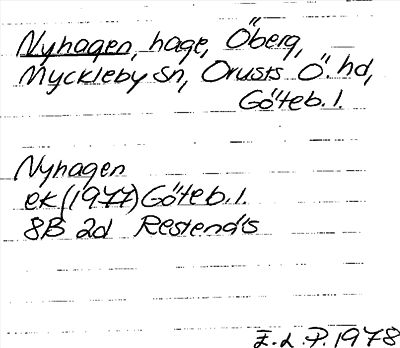 Nyhagen, hage, Öberg,
Myckleby sn, Orusts Ö. hd,
Göteb. l.
Nyhagen
ek (1977) Göteb. l.
8B 2d Restenäs
E. L. P. 1978